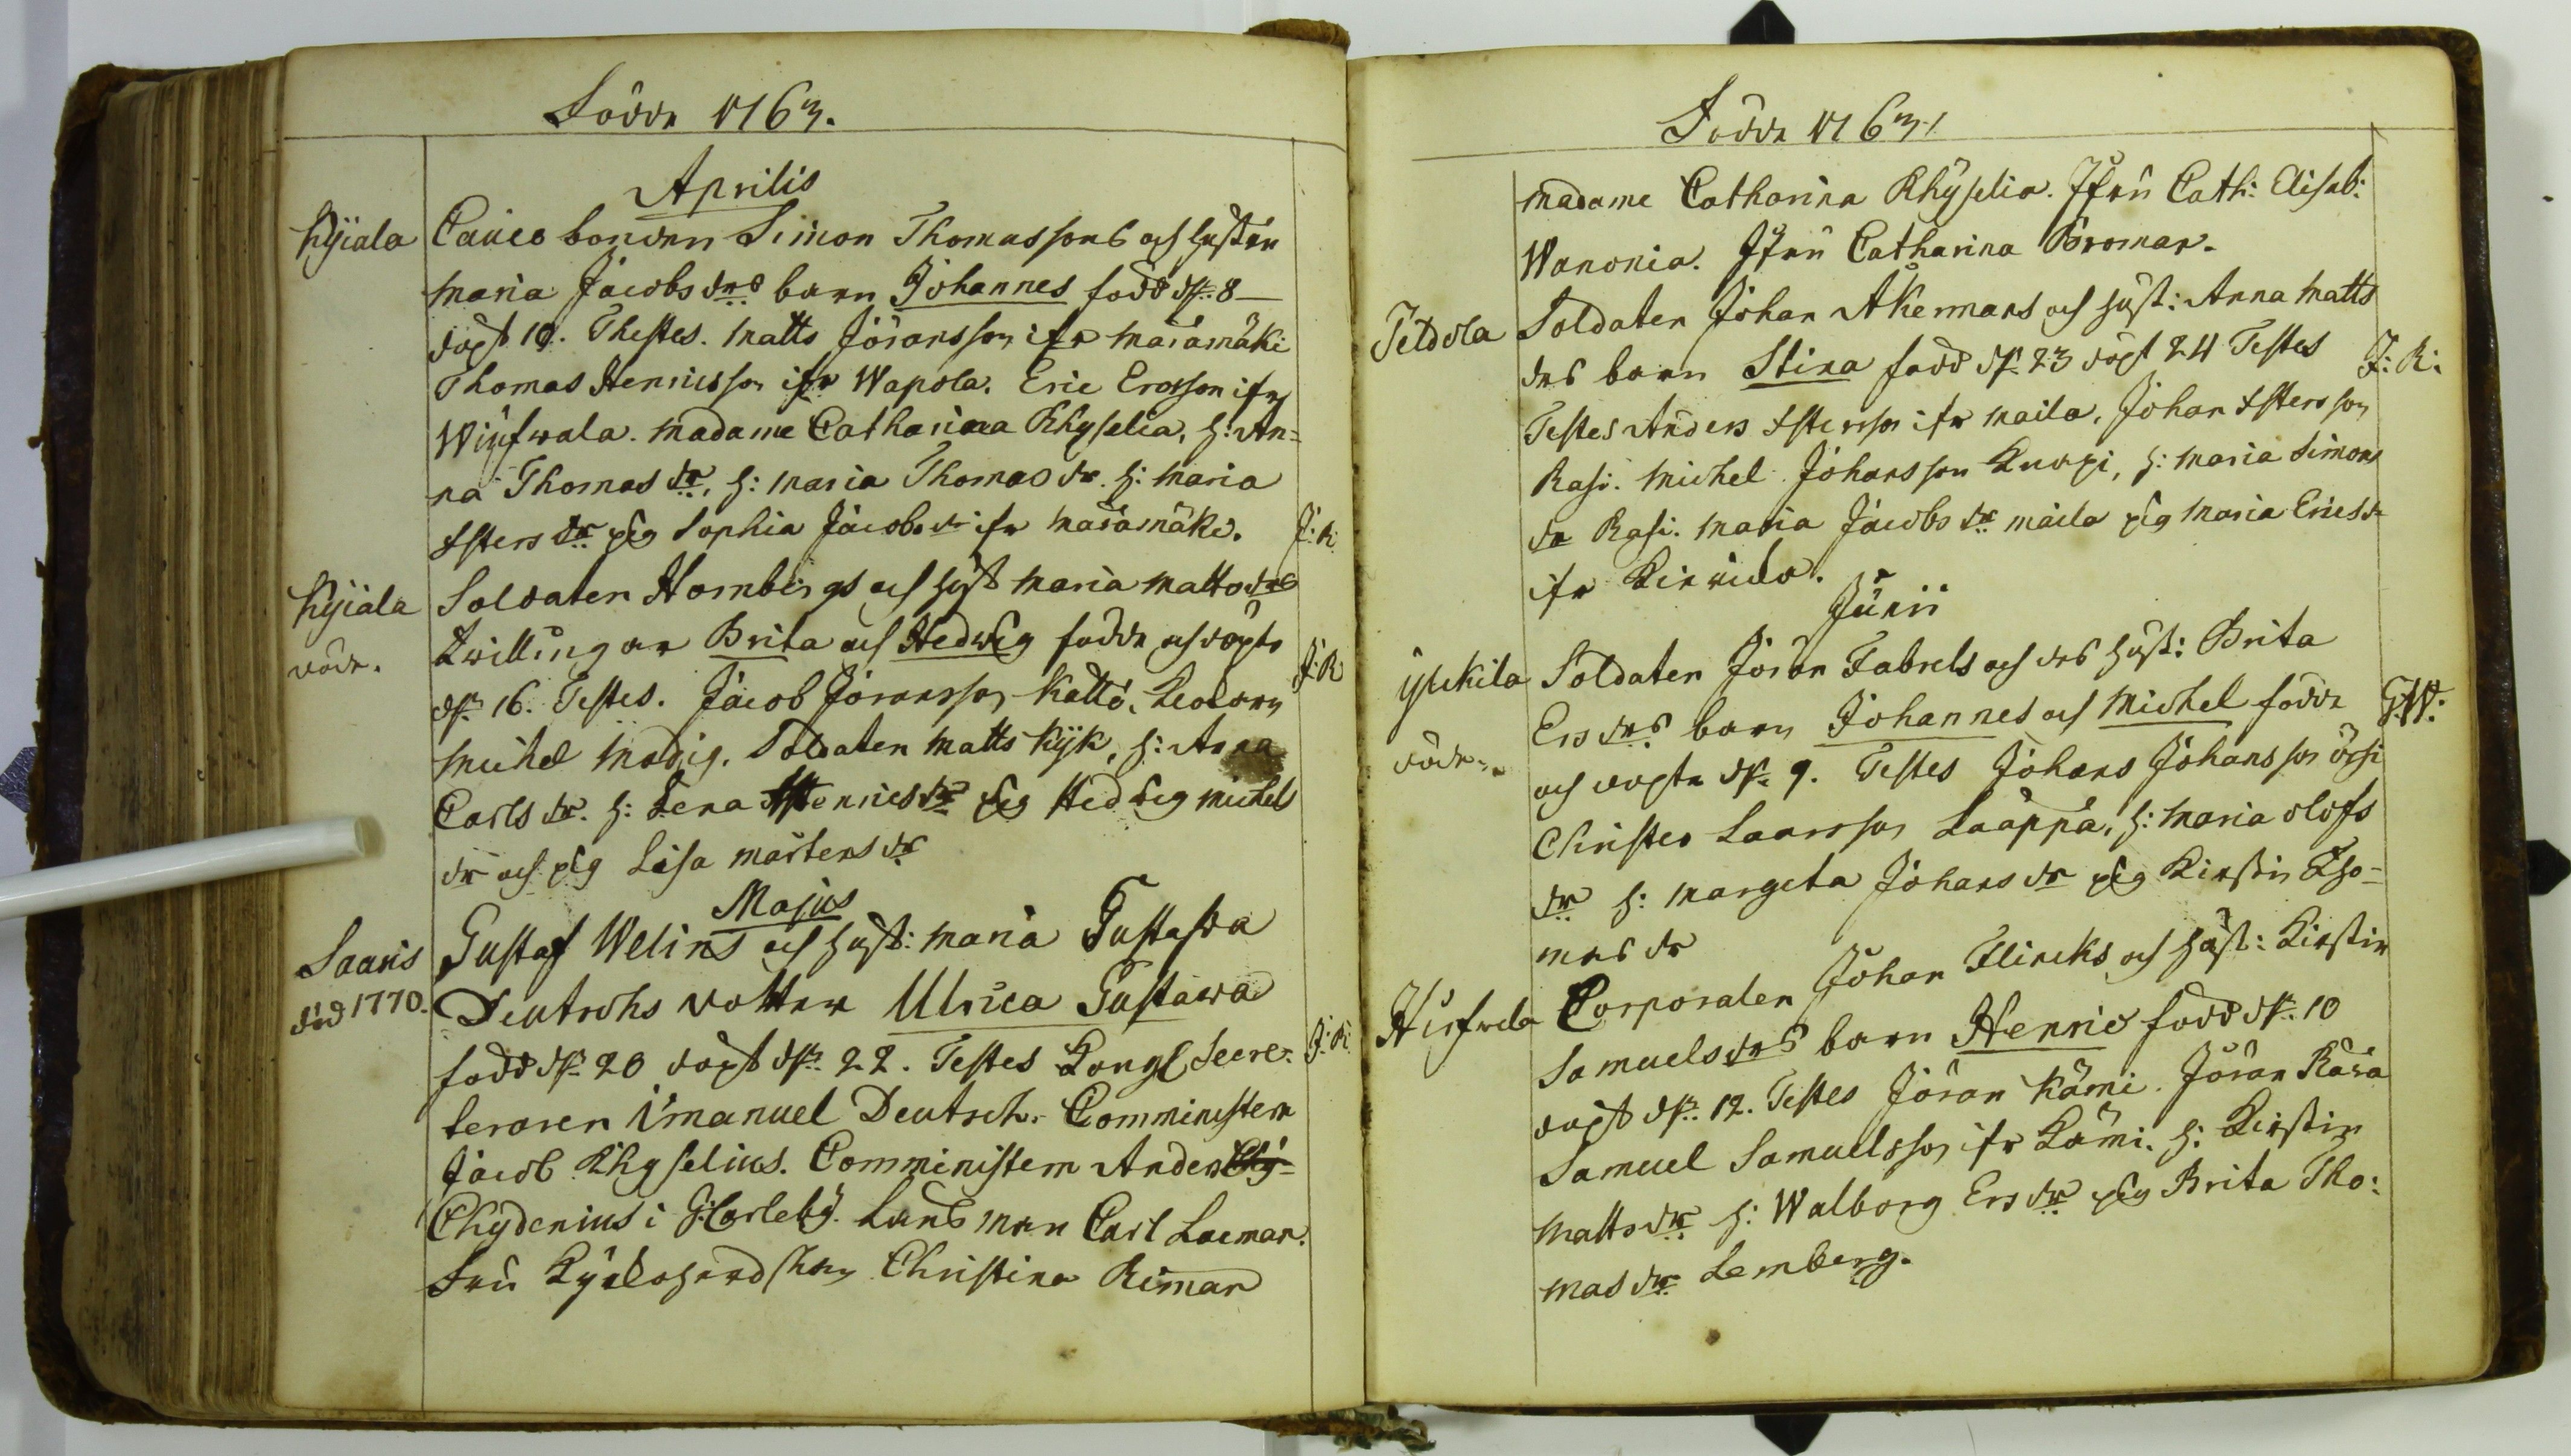 Födde 1763.
Aprilis
Kyiala Canco bonden Simon Thomassons och hustru
Maria Jacobs drs barn Johannes född d. 8
döpt 10. Thestes. Matts Jöransson ifr Maramäki
Thomas Henricsson ifr Wapola. Eric Ersson ifrn
Wiufwala. Madame Catharina Rhyselia, h: An=
na Thomas dr, h: Maria Thomas dr. h: Maria
Esters dr pig Sophia Jacobs dr ifr Maramäki. J:R
Kyiala Soldaten Hornbergs och hust Maria Matts drs
döde. Zwillingar Brita och Hedwig födde och döpte J:R
d. 16. Testes. Jacob Jöransson Katto,
Michel Modig. Soldaten Matts Kyk, h: Anna
Carls dr. h: Lena Henrics dr pig Hedwig Michels
dr och pig Lisa Mårtens dr
Majus
Saaris Gustaf Welins och hust: Maria Gustafva
död 1770. Deutschs dotter Ulrica Gustawa
född d. 20 döpt d. 22. Testes Kongl Secre= J:R
teraren Imanuel Deutsch. Comministern
Jacob Rhyselius. Comministern Anders Chy=
Chydenius i G:Carleby. Lands man Carl Lacman.
Fru Kyrkoherdskan Christina Rimar
Födde 1763
Madame Catharina Rhyselia. Jfru Cath: Elisab:
Wanonia. Jfru Catharina Broman.
Soldaten Johan Akermans och hust: Anna Matts
drs barn Stina född d. 23 döpt 24 Testes J:R:
Testes Anders Estersson ifr Maila, Johan Estersson
Rasi. Michel Johansson Knapi, h: Maria Simons
dr Rasi. Maria Jacobs dr Maila pig Maria Erics dr
ifr
Junii
Soldaten Jöran Fabrels och drs hust: Brita
Ers drs barn Johannes och Michel födde G:W:
döde och döpte d. 9. Testes Johans Johansson
Christer Laarsson Laappa, h: Maria Olofs
dr h: Margeta Johans dr pig Kirstin Tho=
mas dr
Corporalen Johan Flincks och hust: Kirstin
Samuels drs barn Henric född d. 10
döpt d. 12. Testes Jöran Kämi. Jöran Rasa
Samuel Samuelsson ifr Kämi. h: Kirstin
Matts dr h: Walborg Ers dr pig Brita Tho:
mas dr Lemberg.